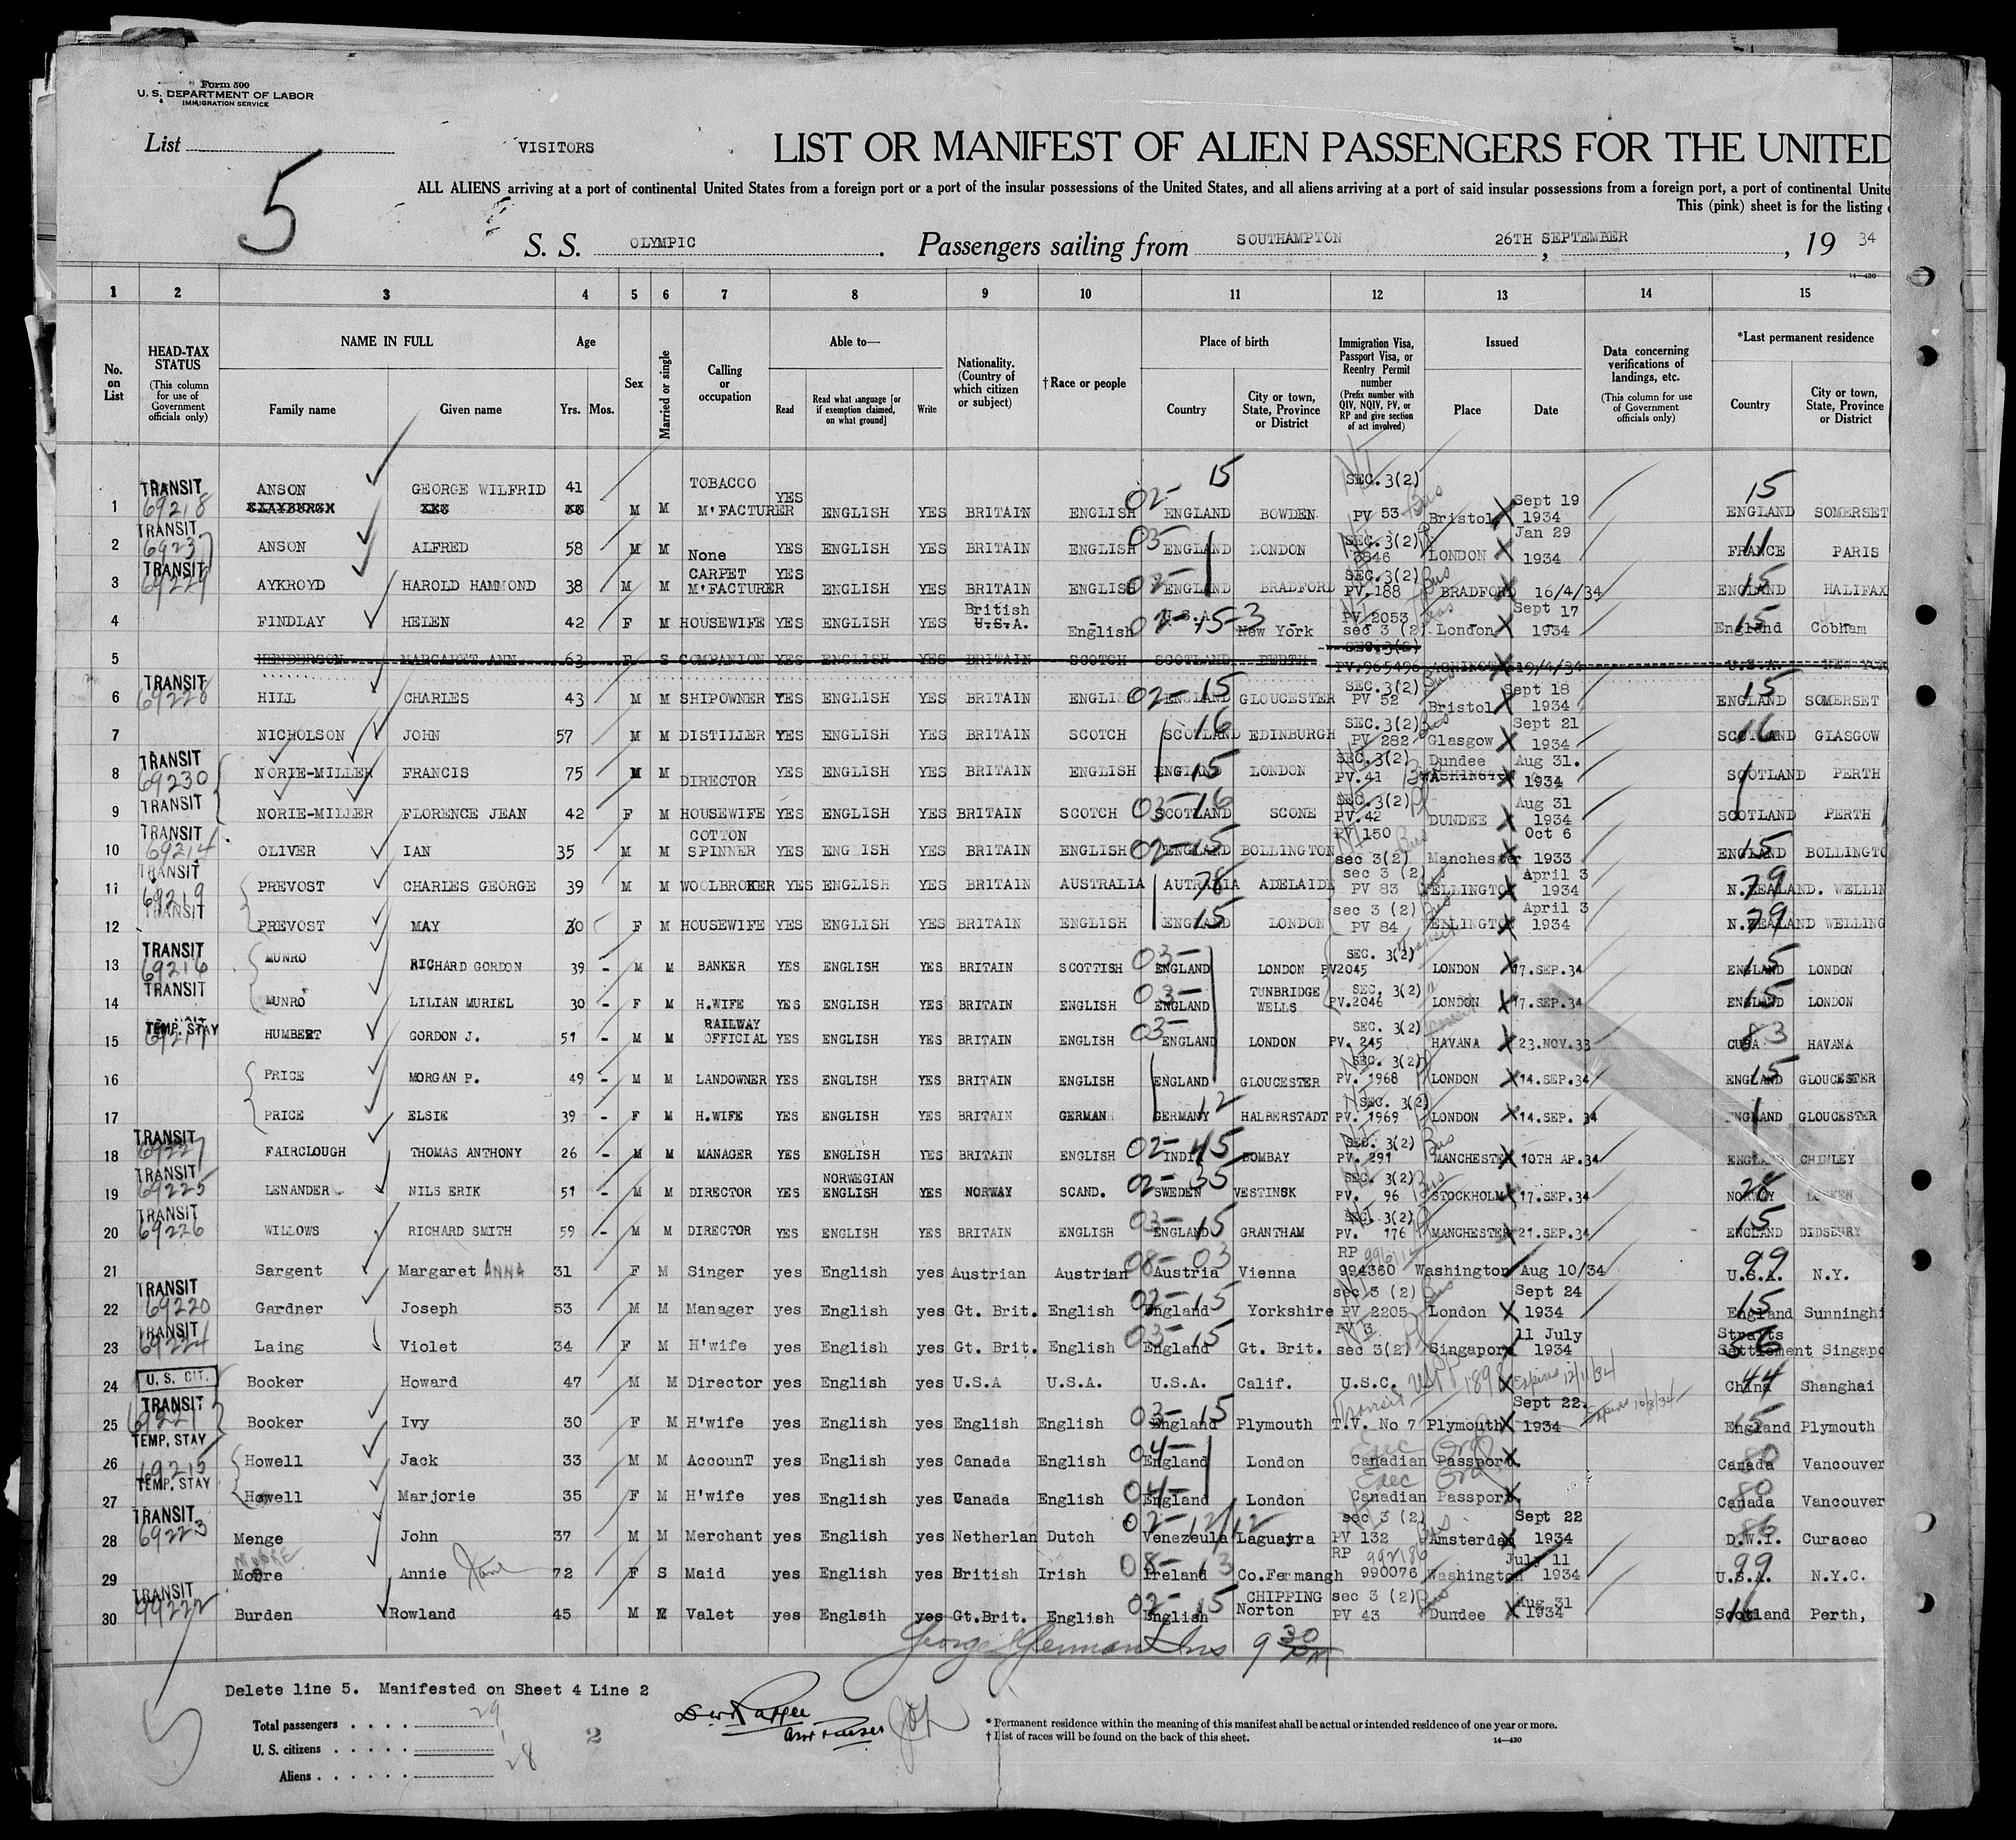 Form 500
U. S. DEPARTMENT OF LABOR
IMMIGRATION SERVICE
List
5
VISITORS
LIST OR MANIFEST OF ALIEN PASSENGERS FOR THE UNITED
ALL ALIENS arriving at a port of continental United States from a foreign port or a port of the insular possessions of the United States, and all aliens arriving at a port of said insular possessions from a foreign port, a port of continental Unite
This (pink) sheet is for the listing
S. S. OLYMPIC. Passengers sailing from SOUTHAMPTON, 26TH SEPTEMBER, 19 34
14-430
1 2 3 4 5 6 7 8 9 10 11 12 13 14 15
No. on List
HEAD-TAX STATUS (This column for use of Government officials only)
NAME IN FULL
Family name Given name
Age
Yrs. Mos.
Sex
Married or single
Calling or occupation
Able to—
Read
Read what language [or if exemption claimed, on what ground]
Write
Nationality. (Country of which citizen or subject)
†Race or people
Place of birth
Country
City or town, State, Province or District
Immigration Visa, Passport Visa, or Reentry Permit number (Prefix number with QIV, NQIV, PV, or RP and give section of act involved)
Issued
Place Date
Data concerning verifications of landings, etc. (This column for use of Government officials only)
*Last permanent residence
Country
City or town, State, Province or District
1 TRANSIT 69218 ANSON GEORGE WILFRID 41 M M TOBACCO M'FACTURER YES ENGLISH YES BRITAIN ENGLISH 02- 15 ENGLAND BOWDEN SEC. 3(2) PV 53 Bus Bristol Sept 19 1934 15 ENGLAND SOMERSET
2 TRANSIT ANSON ALFRED 58 M M None YES ENGLISH YES BRITAIN ENGLISH 03- ENGLAND LONDON SEC. 3(2) 3846 LONDON Jan 29 1934 11 FRANCE PARIS
3 TRANSIT 69229 AYKROYD HAROLD HAMMOND 38 M M CARPET M'FACTURER YES ENGLISH YES BRITAIN ENGLISH 02- ENGLAND BRADFORD SEC. 3(2) PV.188 Bus BRADFORD 16/4/34 15 ENGLAND HALIFAX
4 FINDLAY HELEN 42 F M HOUSEWIFE YES ENGLISH YES British U.S.A. English 02-15-3 U.S.A. New York PV 2053 sec 3 (2) London Sept 17 1934 15 England Cobham
5 HENDERSON MARGARET ANN 63 F S COMPANION YES ENGLISH YES BRITAIN SCOTCH SCOTLAND PERTH SEC.3(2) PV.965496 WASHINGTON 19/4/34 U.S.A. NEW YORK
6 TRANSIT 69228 HILL CHARLES 43 M M SHIPOWNER YES ENGLISH YES BRITAIN ENGLISH 02-15 ENGLAND GLOUCESTER SEC. 3(2) PV 52 Bus Bristol Sept 18 1934 15 ENGLAND SOMERSET
7 NICHOLSON JOHN 57 M M DISTILLER YES ENGLISH YES BRITAIN SCOTCH 16 SCOTLAND EDINBURGH SEC. 3(2) PV 282 Bus Glasgow Sept 21 1934 16 SCOTLAND GLASGOW
8 TRANSIT 69230 NORIE-MILLER FRANCIS 75 M M DIRECTOR YES ENGLISH YES BRITAIN ENGLISH 15 ENGLAND LONDON SEC. 3(2) PV.41 Dundee WASHINGTON Aug 31. 1934 SCOTLAND PERTH
9 TRANSIT NORIE-MILLER FLORENCE JEAN 42 F M HOUSEWIFE YES ENGLISH YES BRITAIN SCOTCH 03-16 SCOTLAND SCONE SEC. 3(2) PV.42 DUNDEE Aug 31 1934 SCOTLAND PERTH
10 TRANSIT 69214 OLIVER IAN 35 M M COTTON SPINNER YES ENGLISH YES BRITAIN ENGLISH 02-15 ENGLAND BOLLINGTON PV 150 sec 3(2) Bus Manchester Oct 6 1933 15 ENGLAND BOLLINGTO
11 TRANSIT 69219 PREVOST CHARLES GEORGE 39 M M WOOLBROKER YES ENGLISH YES BRITAIN AUSTRALIA 78 AUTRALIA ADELAIDE sec 3 (2) PV 83 WELLINGTON April 3 1934 79 N.ZEALAND. WELLIN
12 TRANSIT PREVOST MAY 30 F M HOUSEWIFE YES ENGLISH YES BRITAIN ENGLISH 15 ENGLAND LONDON sec 3 (2) PV 84 WELLINGTON April 3 1934 79 N.ZEALAND WELLING
13 TRANSIT 69216 MUNRO RICHARD GORDON 39 - M M BANKER YES ENGLISH YES BRITAIN SCOTTISH 03- ENGLAND LONDON SEC. 3(2) PV2045 Transit LONDON 17.SEP.34 15 ENGLAND LONDON
14 TRANSIT MUNRO LILIAN MURIEL 30 - F M H.WIFE YES ENGLISH YES BRITAIN ENGLISH 03- ENGLAND TUNBRIDGE WELLS SEC. 3(2) PV.2046 LONDON 17.SEP.34 15 ENGLAND LONDON
15 TEMP. STAY 69217 HUMBERT GORDON J. 51 - M M RAILWAY OFFICIAL YES ENGLISH YES BRITAIN ENGLISH 03- ENGLAND LONDON SEC. 3(2) PV. 245 HAVANA 23.NOV.33 83 CUBA HAVANA
16 PRICE MORGAN P. 49 - M M LANDOWNER YES ENGLISH YES BRITAIN ENGLISH ENGLAND GLOUCESTER SEC. 3(2) PV. 1968 LONDON 14.SEP.34 15 ENGLAND GLOUCESTER
17 PRICE ELSIE 39 - F M H.WIFE YES ENGLISH YES BRITAIN GERMAN 12 GERMANY HALBERSTADT SEC. 3(2) PV. 1969 LONDON 14.SEP. 34 ENGLAND GLOUCESTER
18 TRANSIT 69227 FAIRCLOUGH THOMAS ANTHONY 26 - M M MANAGER YES ENGLISH YES BRITAIN ENGLISH 02-45 INDIA BOMBAY SEC. 3(2) PV. 291 Bus MANCHESTER 10TH AP.34 ENGLAND CHINLEY
19 TRANSIT 69225 LENANDER NILS ERIK 51 - M M DIRECTOR YES NORWEGIAN ENGLISH YES NORWAY SCAND. 02-35 SWEDEN VESTINSK SEC. 3(2) PV. 96 Bus STOCKHOLM 17.SEP.34 28 NORWAY
20 TRANSIT 69226 WILLOWS RICHARD SMITH 59 - M M DIRECTOR YES ENGLISH YES BRITAIN ENGLISH 03-15 ENGLAND GRANTHAM SEC. 3(2) PV. 176 MANCHESTER 21.SEP.34 15 ENGLAND DIDSBURY
21 Sargent Margaret ANNA 31 F M Singer yes English yes Austrian Austrian 08-03 Austria Vienna RP 994360 Washington Aug 10/34 99 U.S.A. N.Y.
22 TRANSIT 69220 Gardner Joseph 53 M M Manager yes English yes Gt. Brit. English 02-15 England Yorkshire sec 3 (2) PV 2205 Bus London Sept 24 1934 15 England Sunninghi
23 TRANSIT 69224 Laing Violet 34 F M H'wife yes English yes Gt. Brit. English 03-15 England Gt. Brit. PV 3 sec 3(2) Singapore 11 July 1934 Straits Settlement Singapo
24 U. S. CIT. Booker Howard 47 M M Director yes English yes U.S.A U.S.A. U.S.A. Calif. U.S.C. USPP 1898 Expires 12/11/34 44 China Shanghai
25 TRANSIT 69221 Booker Ivy 30 F M H'wife yes English yes English English 03-15 England Plymouth Transit T.V. No 7 Plymouth Sept 22. 1934 15 England Plymouth
26 TEMP. STAY 69215 Howell Jack 33 M M AccounT yes English yes Canada English 04- England London Exec Ord Canadian Passport. 80 Canada Vancouver
27 TEMP. STAY Howell Marjorie 35 F M H'wife yes English yes Canada English 04- England London Exec Ord Canadian Passport. 80 Canada Vancouver
28 TRANSIT 69223 Menge John 37 M M Merchant yes English yes Netherlan Dutch 02-12/12 Venezeula Laguayra sec 3 (2) PV 132 Bus Amsterdam Sept 22 1934 86 D.W.I. Curacao
29 MOORE Moore Annie Jane 72 F S Maid yes English yes British Irish 08-13 Ireland Co.Fermangh RP 992186 990076 Washington July 11 1934 99 U.S.A. N.Y.C.
30 TRANSIT 99222 Burden Rowland 45 M M Valet yes Englsih yes Gt.Brit. English 02-15 English CHIPPING Norton sec 3 (2) PV 43 Bus Dundee Aug 31 1934 Scotland Perth,
9 30 PM
Delete line 5. Manifested on Sheet 4 Line 2
Total passengers . . . . 29
U. S. citizens . . . . . 1
Aliens . . . . . . 28
2
* Permanent residence within the meaning of this manifest shall be actual or intended residence of one year or more.
† List of races will be found on the back of this sheet.
14—430